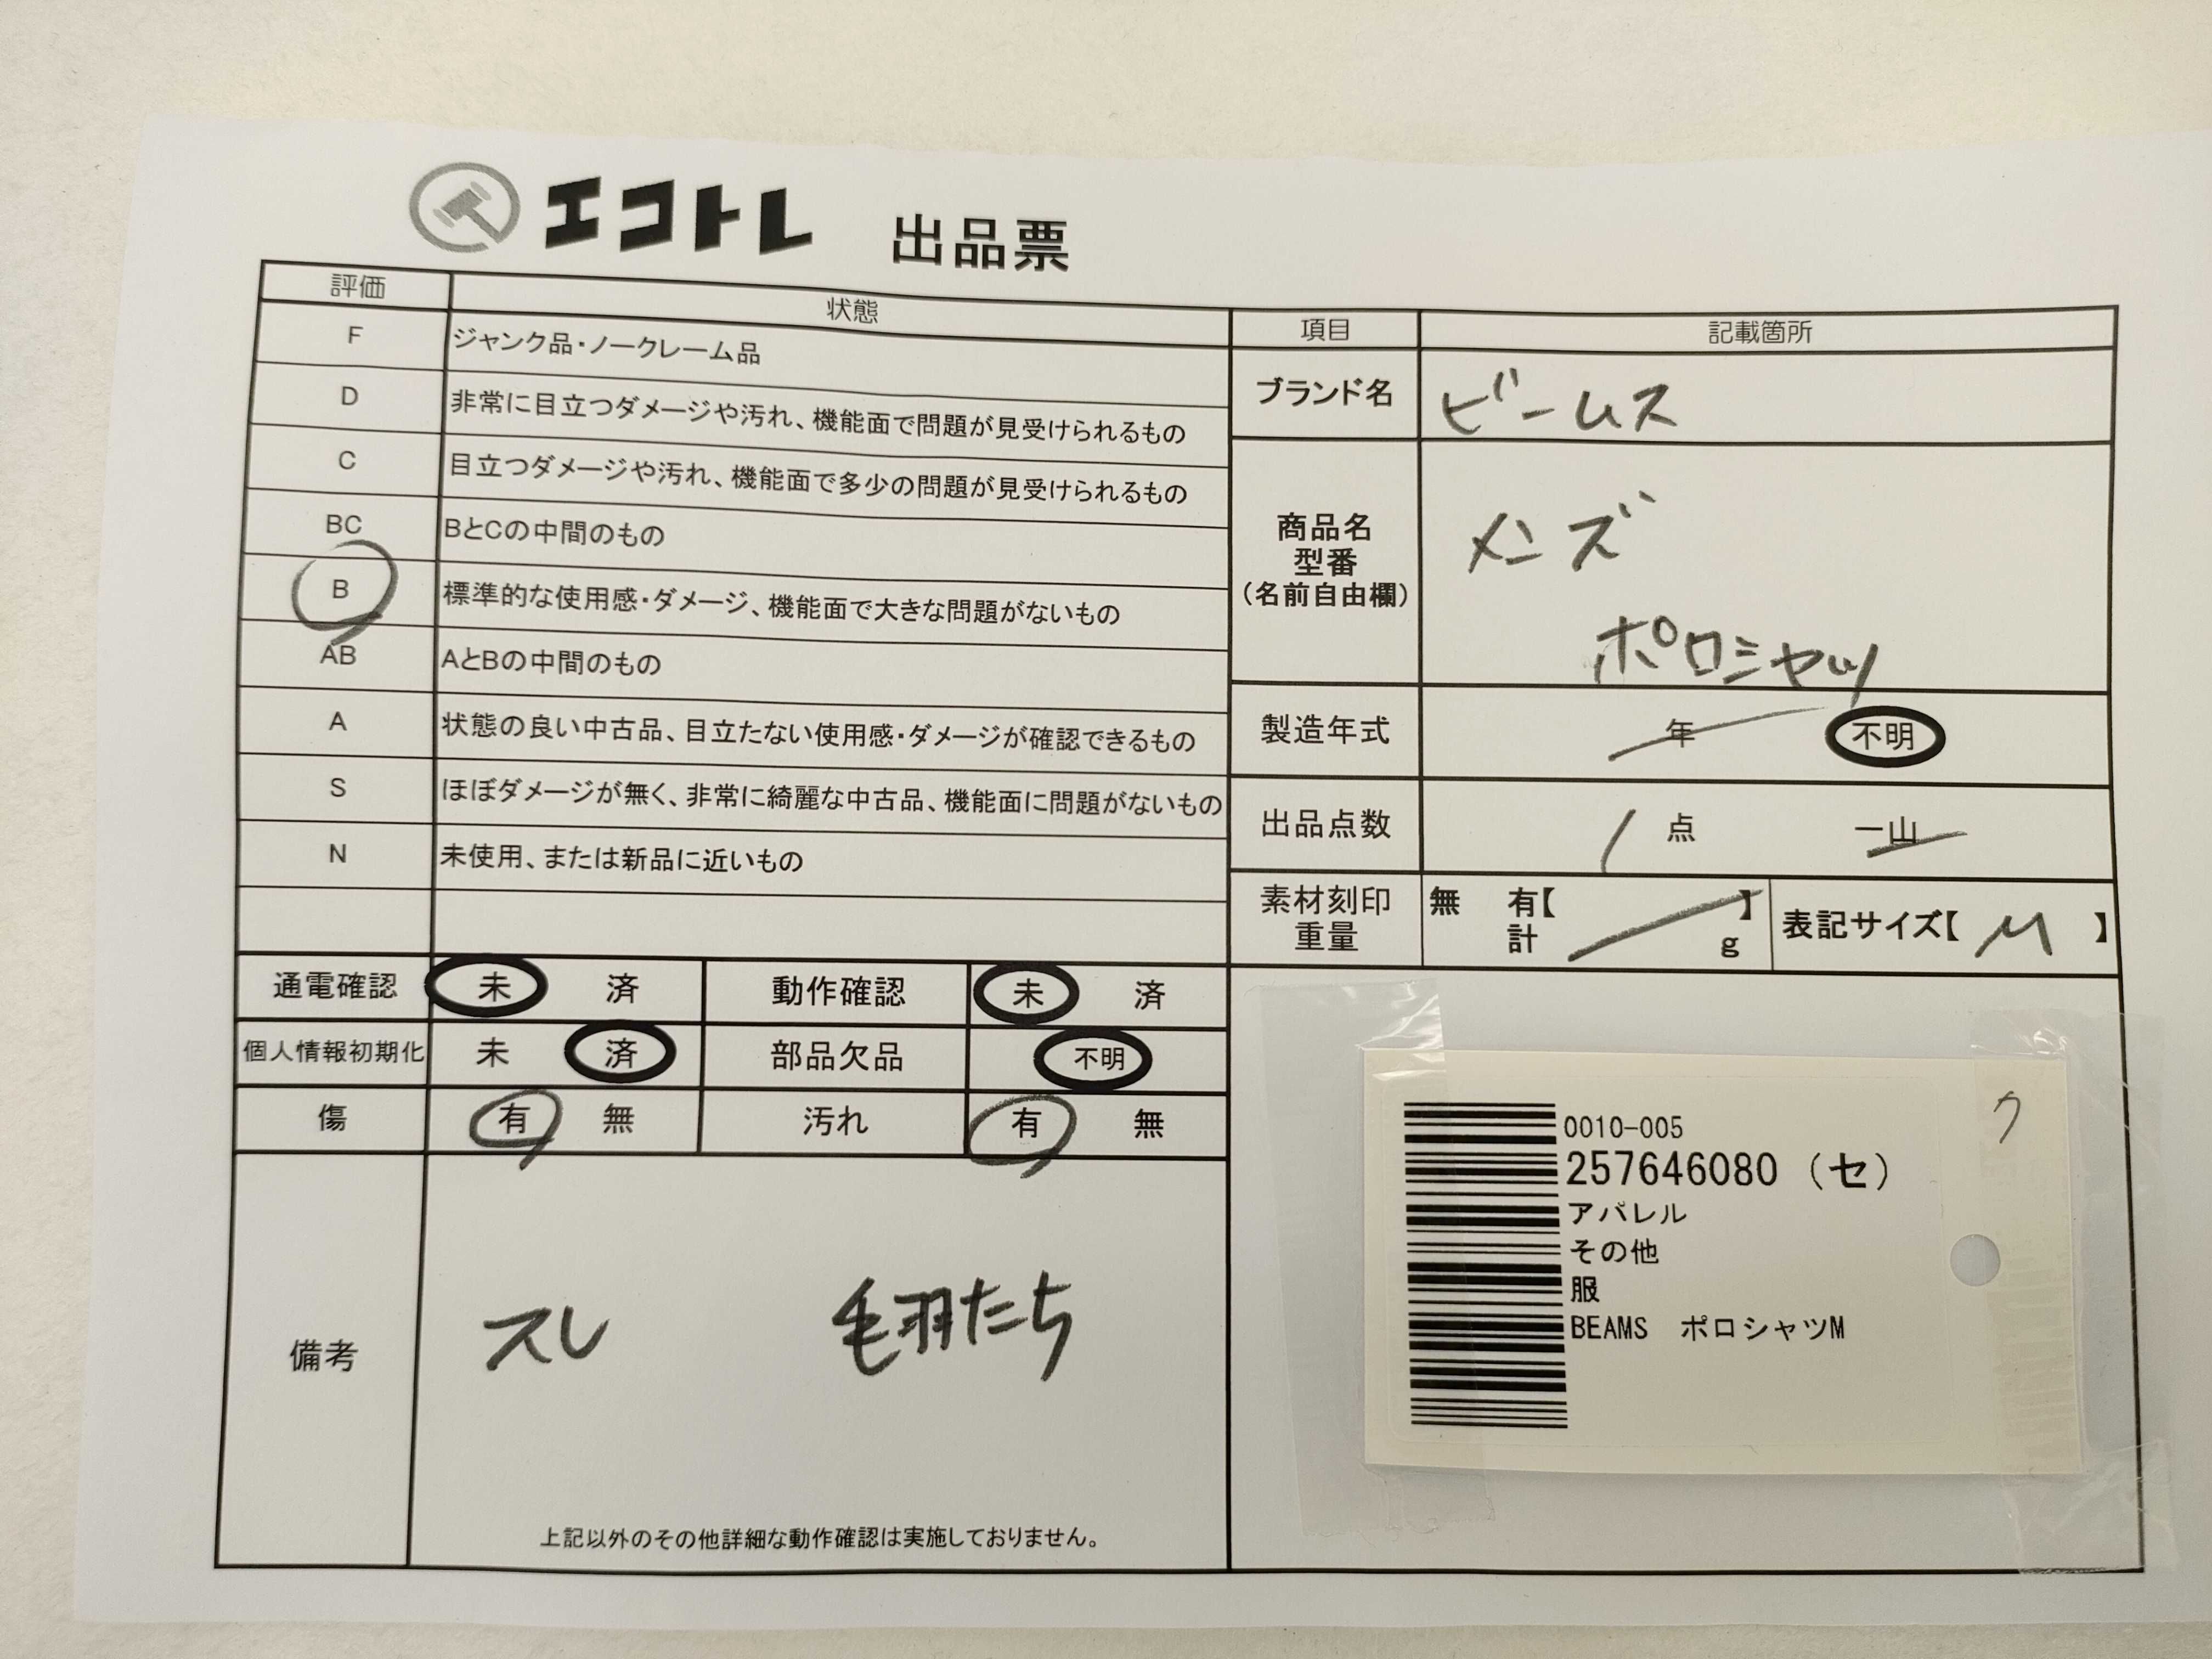 エコトレ 出品票
評価 状態
F ジャンク品・ノークレーム品
D 非常に目立つダメージや汚れ、機能面で問題が見受けられるもの
C 目立つダメージや汚れ、機能面で多少の問題が見受けられるもの
BC BとCの中間のもの
B 標準的な使用感・ダメージ、機能面で大きな問題がないもの
AB AとBの中間のもの
A 状態の良い中古品、目立たない使用感・ダメージが確認できるもの
S ほぼダメージが無く、非常に綺麗な中古品、機能面に問題がないもの
N 未使用、または新品に近いもの
項目 記載箇所
ブランド名 ビームス
商品名
型番
(名前自由欄)
メンズ
ポロシャツ
製造年式 年 不明
出品点数 1 点 一山
素材刻印
重量
無 有【 】
計 g
表記サイズ【 M 】
通電確認 未 済 動作確認 未 済
個人情報初期化 未 済 部品欠品 不明
傷 有 無 汚れ 有 無
備考
スレ 毛羽たち
上記以外のその他詳細な動作確認は実施しておりません。
0010-005
257646080 (セ)
アパレル
その他
服
BEAMS ポロシャツM